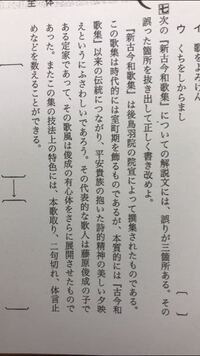 イ 歌をよろけん
ウ くちをしからまし
七 次の『新古今和歌集』についての解説文には、誤りが三箇所ある。その
誤った箇所を抜き出して正しく書き改めよ。
『新古今和歌集』は後鳥羽院の院宣によって撰集されたものである。
この歌集は時代的には室町期を飾るものであるが、本質的には『古今和
歌集』以来の伝統につながり、平安貴族の抱いた詩的精神の美しい夕映
えというにふさわしいであろう。その代表的な歌人は藤原俊成の子で
ある定家であって、その歌風は俊成の有心体をさらに展開させたもので
あった。またこの集の技法上の特色には、本歌取り、二句切れ、体言止
めなどを数えることができる。